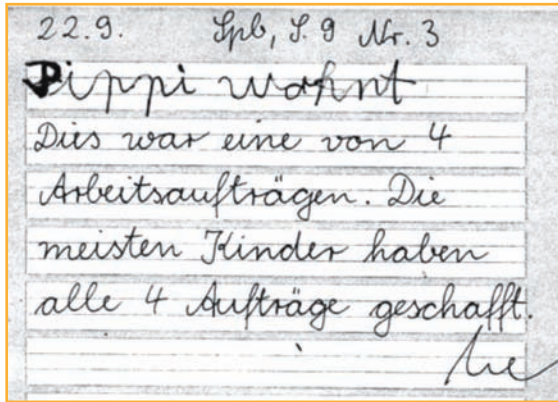 22.9. Spb, S. 9 Nr. 3
Pippi wohnt
Dies war eine von 4
Arbeitsaufträgen. Die
meisten Kinder haben
alle 4 Aufträge geschafft.